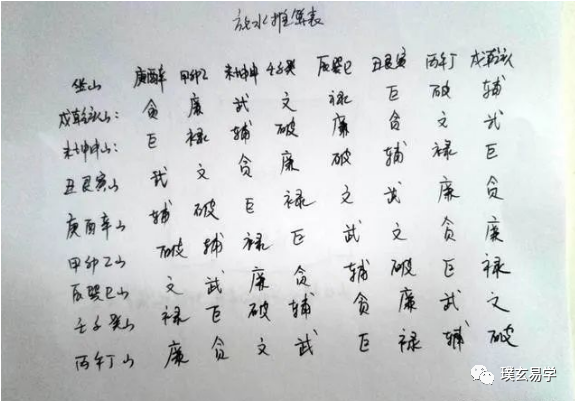 放水推算表
坐山 庚酉辛 甲卯乙 未坤申 壬子癸 辰巽巳 丑艮寅 丙午丁 戌乾亥
戌乾亥山: 贪 廉 武 文 禄 巨 破 辅
未坤申山: 巨 禄 辅 破 廉 贪 文 武
丑艮寅山 武 文 贪 廉 破 辅 禄 巨
庚酉辛山 辅 破 巨 禄 文 武 廉 贪
甲卯乙山 破 辅 禄 巨 武 文 贪 廉
辰巽巳山 文 武 廉 贪 辅 破 巨 禄
壬子癸山 禄 巨 破 辅 贪 廉 武 文
丙午丁山 廉 贪 文 武 巨 禄 辅 破
璞玄易学